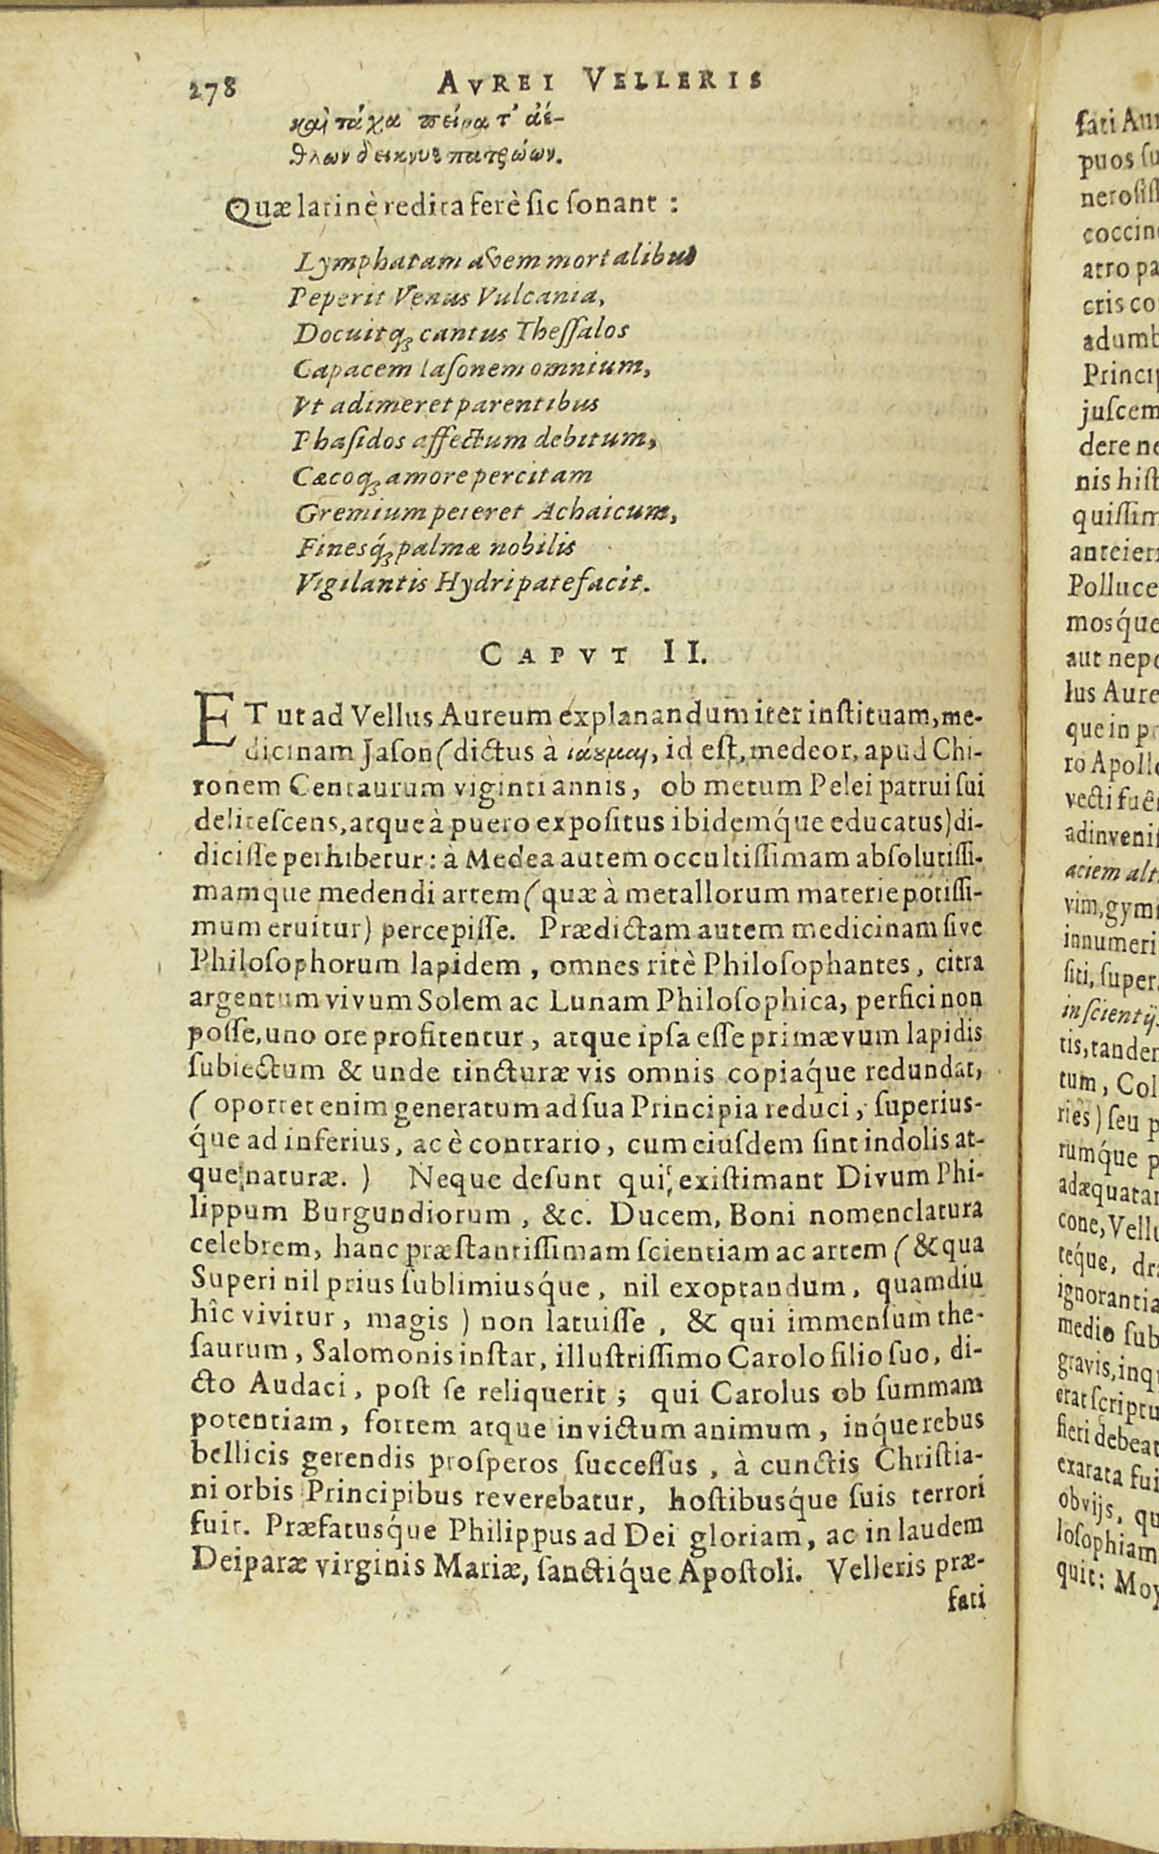 278 AVREI VELLERIS
καὶ τάχα πείρατ' ἀέ-
θλων δείκνυε πατρώων.
Quæ latinè redita ferè sic sonant :
Lymphatam avem mortalibus
Peperit Venus Vulcania,
Docuitq; cantus Thessalos
Capacem Iasonem omnium,
Vt adimeret parentibus
Phasidos affectum debitum,
Cæcoq; amore percitam
Gremium peteret Achaicum,
Finesq́; palmæ nobilis
Vigilantis Hydri patefacit.
CAPVT II.
ET ut ad Vellus Aureum explanandum iter instituam, me-
dicinam Jason (dictus à ἰάομαι, id est, medeor, apud Chi-
ronem Centaurum viginti annis, ob metum Pelei patrui sui
delitescens, atque à puero expositus ibidemq́ue educatus) di-
dicisse perhibetur: à Medea autem occultissimam absolutissi-
mamque medendi artem (quæ à metallorum materie potissi-
mum eruitur) percepisse. Prædictam autem medicinam sive
Philosophorum lapidem, omnes ritè Philosophantes, citra
argentum vivum Solem ac Lunam Philosophica, perfici non
posse, uno ore profitentur, atque ipsa esse primævum lapidis
subiectum & unde tincturæ vis omnis copiaq́ue redundat,
(oportet enim generatum ad sua Principia reduci, superius-
q́ue ad inferius, ac è contrario, cum eiusdem sint indolis at-
que naturæ.) Neque desunt qui existimant Divum Phi-
lippum Burgundiorum, &c. Ducem, Boni nomenclatura
celebrem, hanc præstantissimam scientiam ac artem (& qua
Superi nil prius sublimiusq́ue, nil exoptandum, quamdiu
hîc vivitur, magis) non latuisse, & qui immensum the-
saurum, Salomonis instar, illustrissimo Carolo filio suo, di-
cto Audaci, post se reliquerit; qui Carolus ob summam
potentiam, fortem atque invictum animum, inq́ue rebus
bellicis gerendis prosperos successus, à cunctis Christia-
ni orbis Principibus reverebatur, hostibusq́ue suis terrori
fuit. Præfatusq́ue Philippus ad Dei gloriam, ac in laudem
Deiparæ virginis Mariæ, sanctiq́ue Apostoli. Velleris præ-
fati